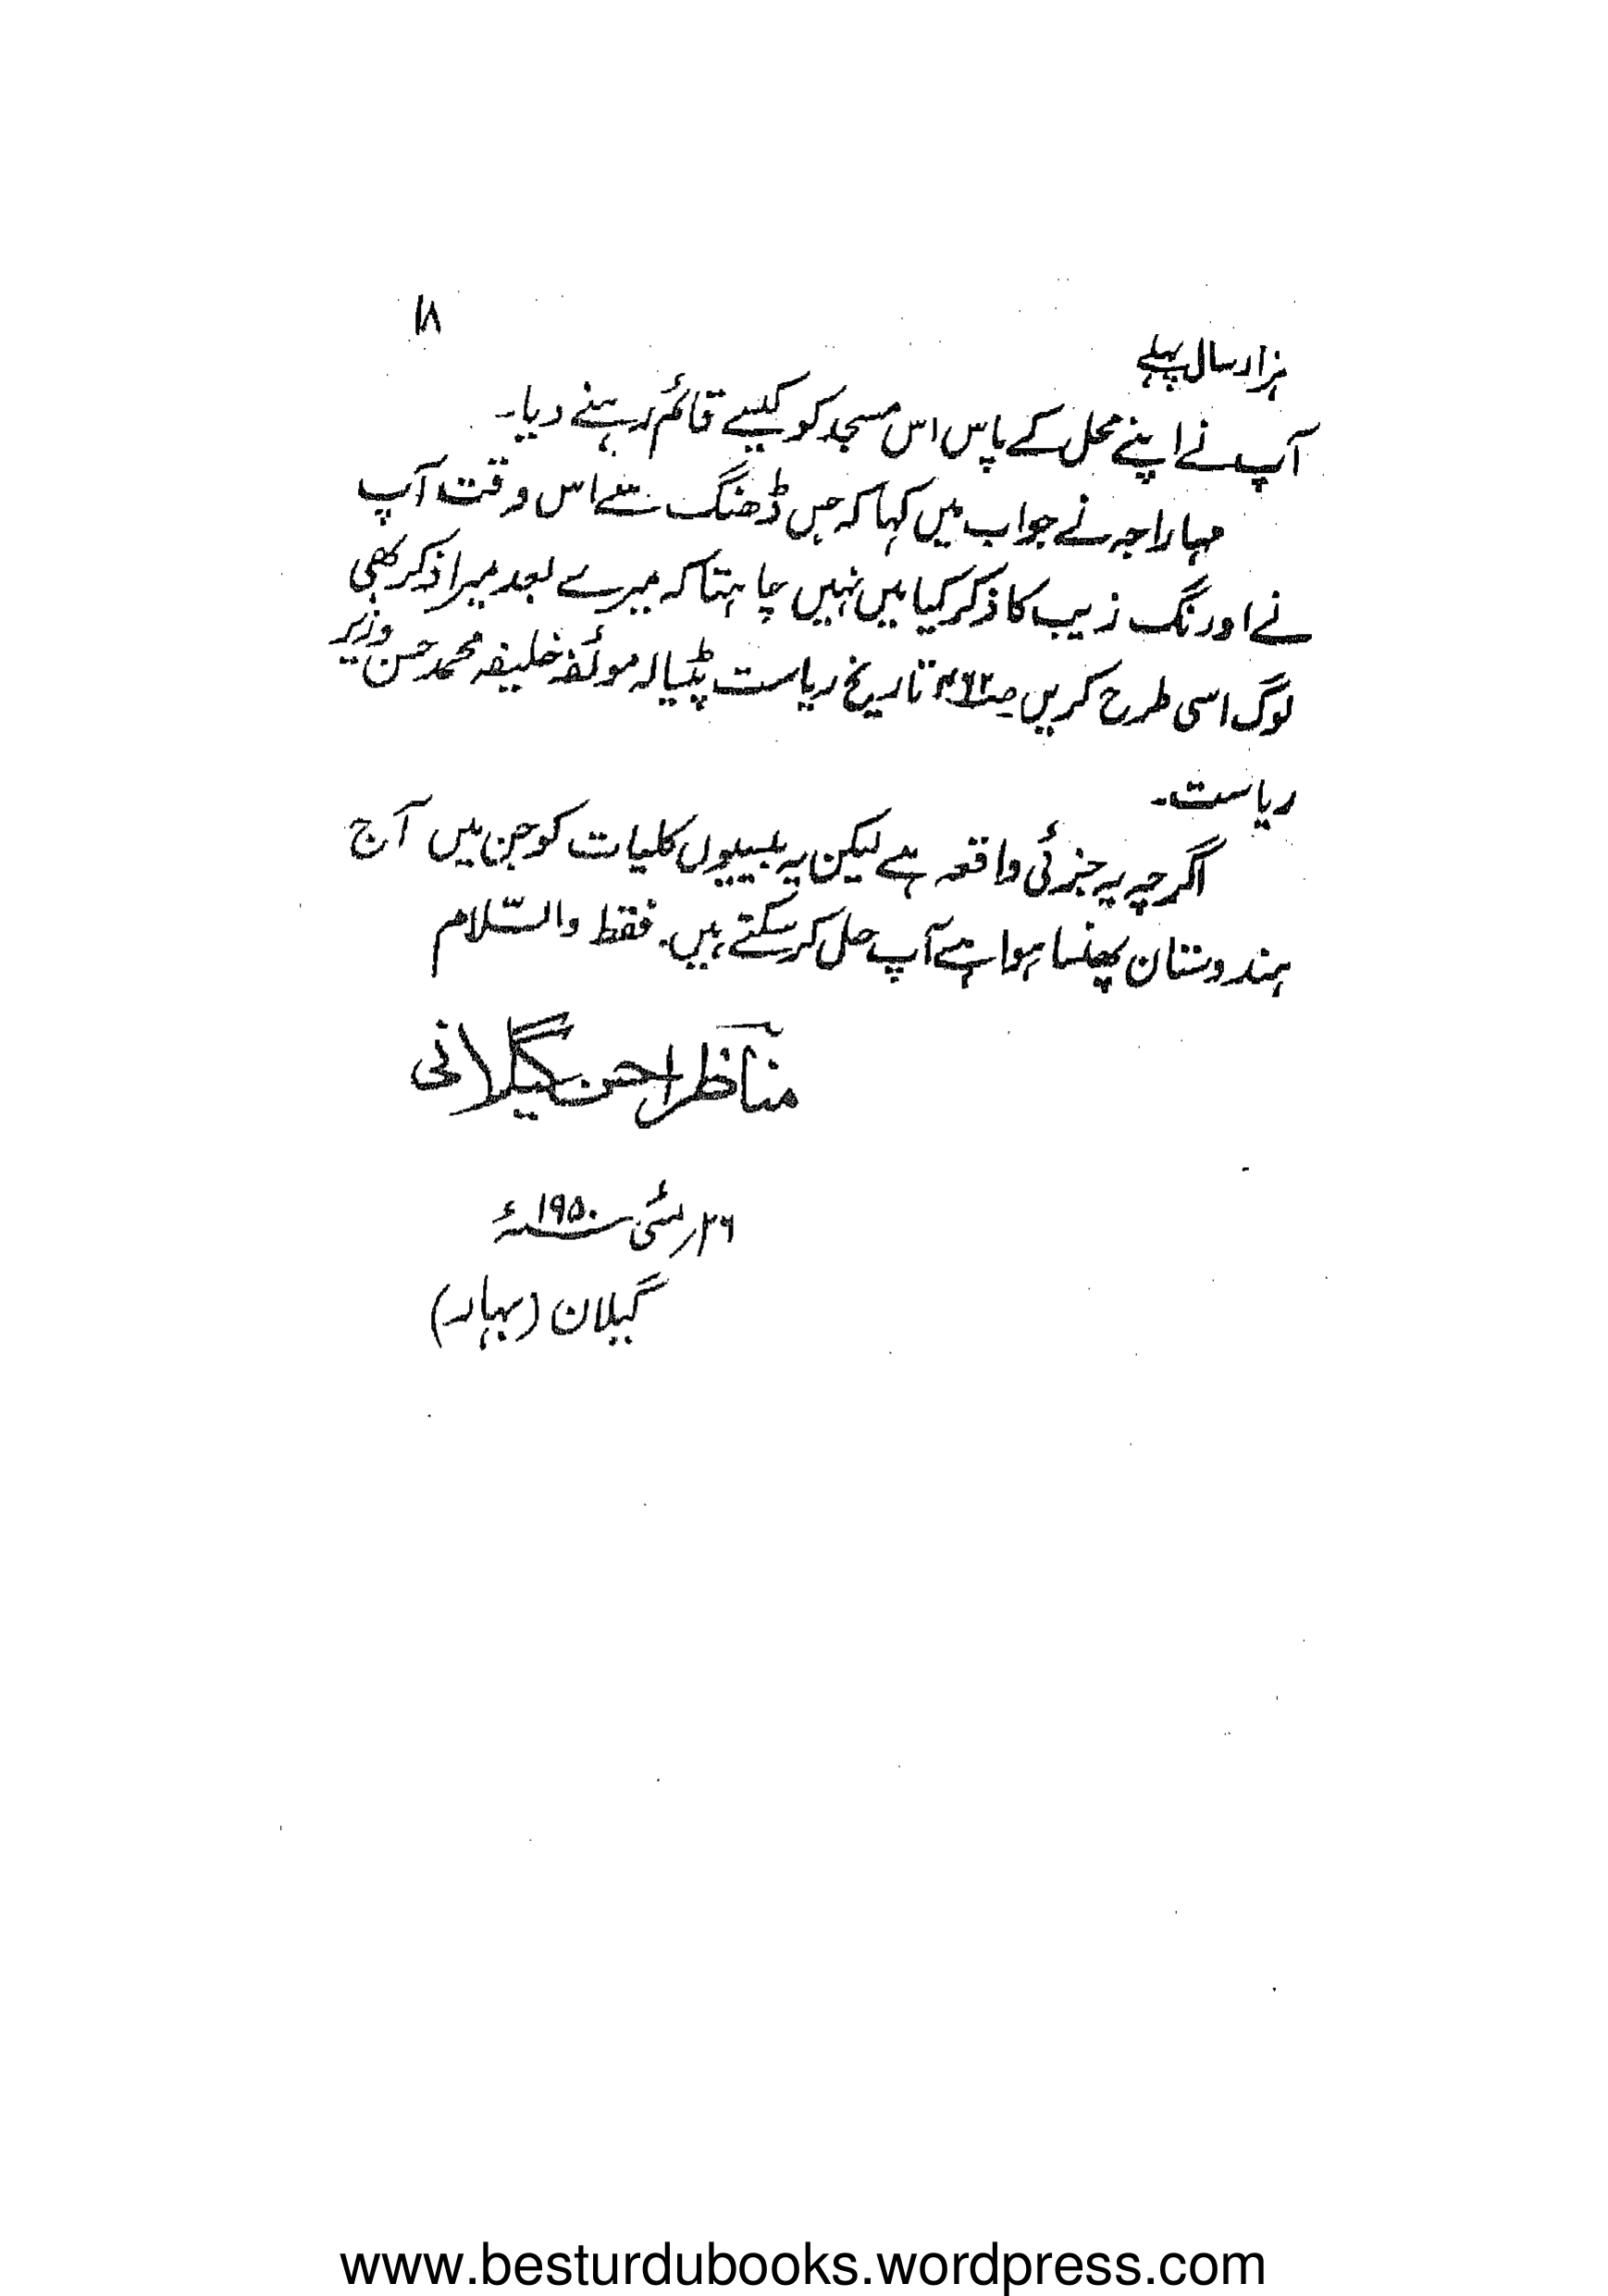 ۱۸
ہزار سال پہلے
آپ نے اپنے محل کے پاس اس مسجد کو کیسے قائم رہنے دیا۔
مہاراجہ نے جواب میں کہا کہ جس ڈھنگ سے اس وقت آپ
نے اورنگ زیب کا ذکر کیا میں نہیں چاہتا کہ میرے بعد میرا ذکر بھی
لوگ اسی طرح کریں تاریخ ریاست پٹیالہ مولفہ خلیفہ محمد حسن وزیر
ریاست۔
اگرچہ یہ جزئی واقعہ ہے لیکن یہ بیسیوں کلیات کو جن میں آج
ہندوستان پھنسا ہوا ہے آپ حل کر سکتے ہیں۔ فقط والسّلام
مناظر احسن گیلانی
۲۶ر مئی ۱۹۵۰ء
گیلان (بہار)
www.besturdubooks.wordpress.com